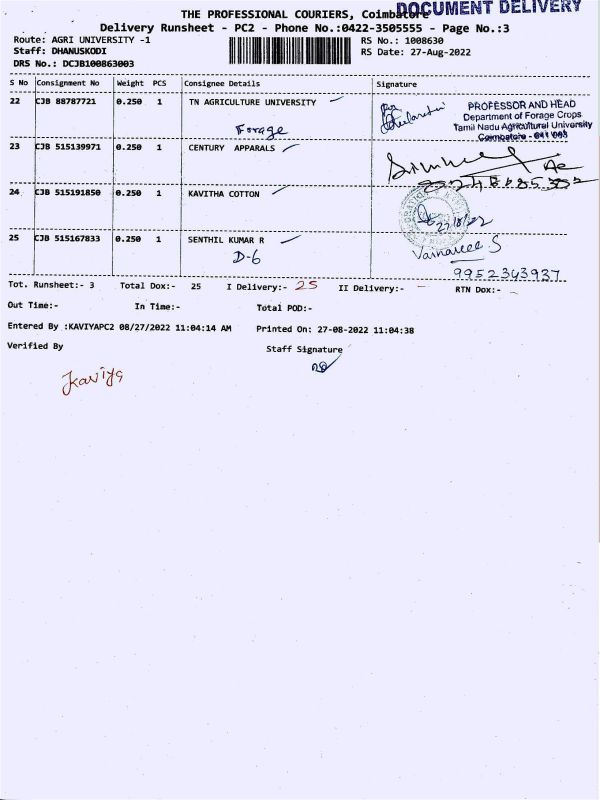 DOCUMENT DELIVERY
THE PROFESSIONAL COURIERS, Coimbatore
Delivery Runsheet - PC2 - Phone No.:0422-3505555 - Page No.:3
Route: AGRI UNIVERSITY -1
RS No.: 1008630
Staff: DHANUSKODI
RS Date: 27-Aug-2022
DRS No.: DCJB100863003
S No Consignment No Weight PCS Consignee Details Signature
22 CJB 88787721 0.250 1 TN AGRICULTURE UNIVERSITY
Forage
PROFESSOR AND HEAD
Department of Forage Crops
Tamil Nadu Agricultural University
Coimbatore - 641 003
23 CJB 515139971 0.250 1 CENTURY APPARALS
24 CJB 515191850 0.250 1 KAVITHA COTTON
27/8/22
25 CJB 515167833 0.250 1 SENTHIL KUMAR R
D-6
9952343937
Tot. Runsheet:- 3 Total Dox:- 25 I Delivery:- 25 II Delivery:- - RTN Dox:- -
Out Time:- In Time:- Total POD:-
Entered By :KAVIYAPC2 08/27/2022 11:04:14 AM Printed On: 27-08-2022 11:04:38
Verified By Staff Signature
Kaviya